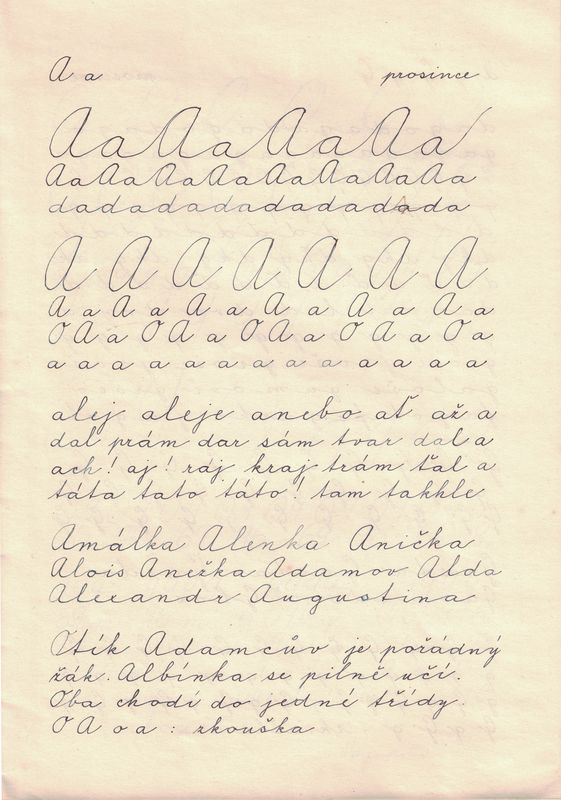 A a prosince
Aa Aa Aa Aa
Aa Aa Aa Aa Aa Aa Aa Aa
da da da da da da da da da da
A A A A A A A
A a A a A a A a A a A a
O A a O A a O A a O A a O a
a a a a a a a a a a a a a
alej aleje anebo ať až a
dal prám dar sám tvar dal a
ach! aj! ráj kraj trám ťal a
táta tato táto! tam takhle
Amálka Alenka Anička
Alois Anežka Adamov Alda
Alexandr Augustina
Otík Adamcův je pořádný
žák. Albínka se pilně učí.
Oba chodí do jedné třídy.
O A o a : zkouška